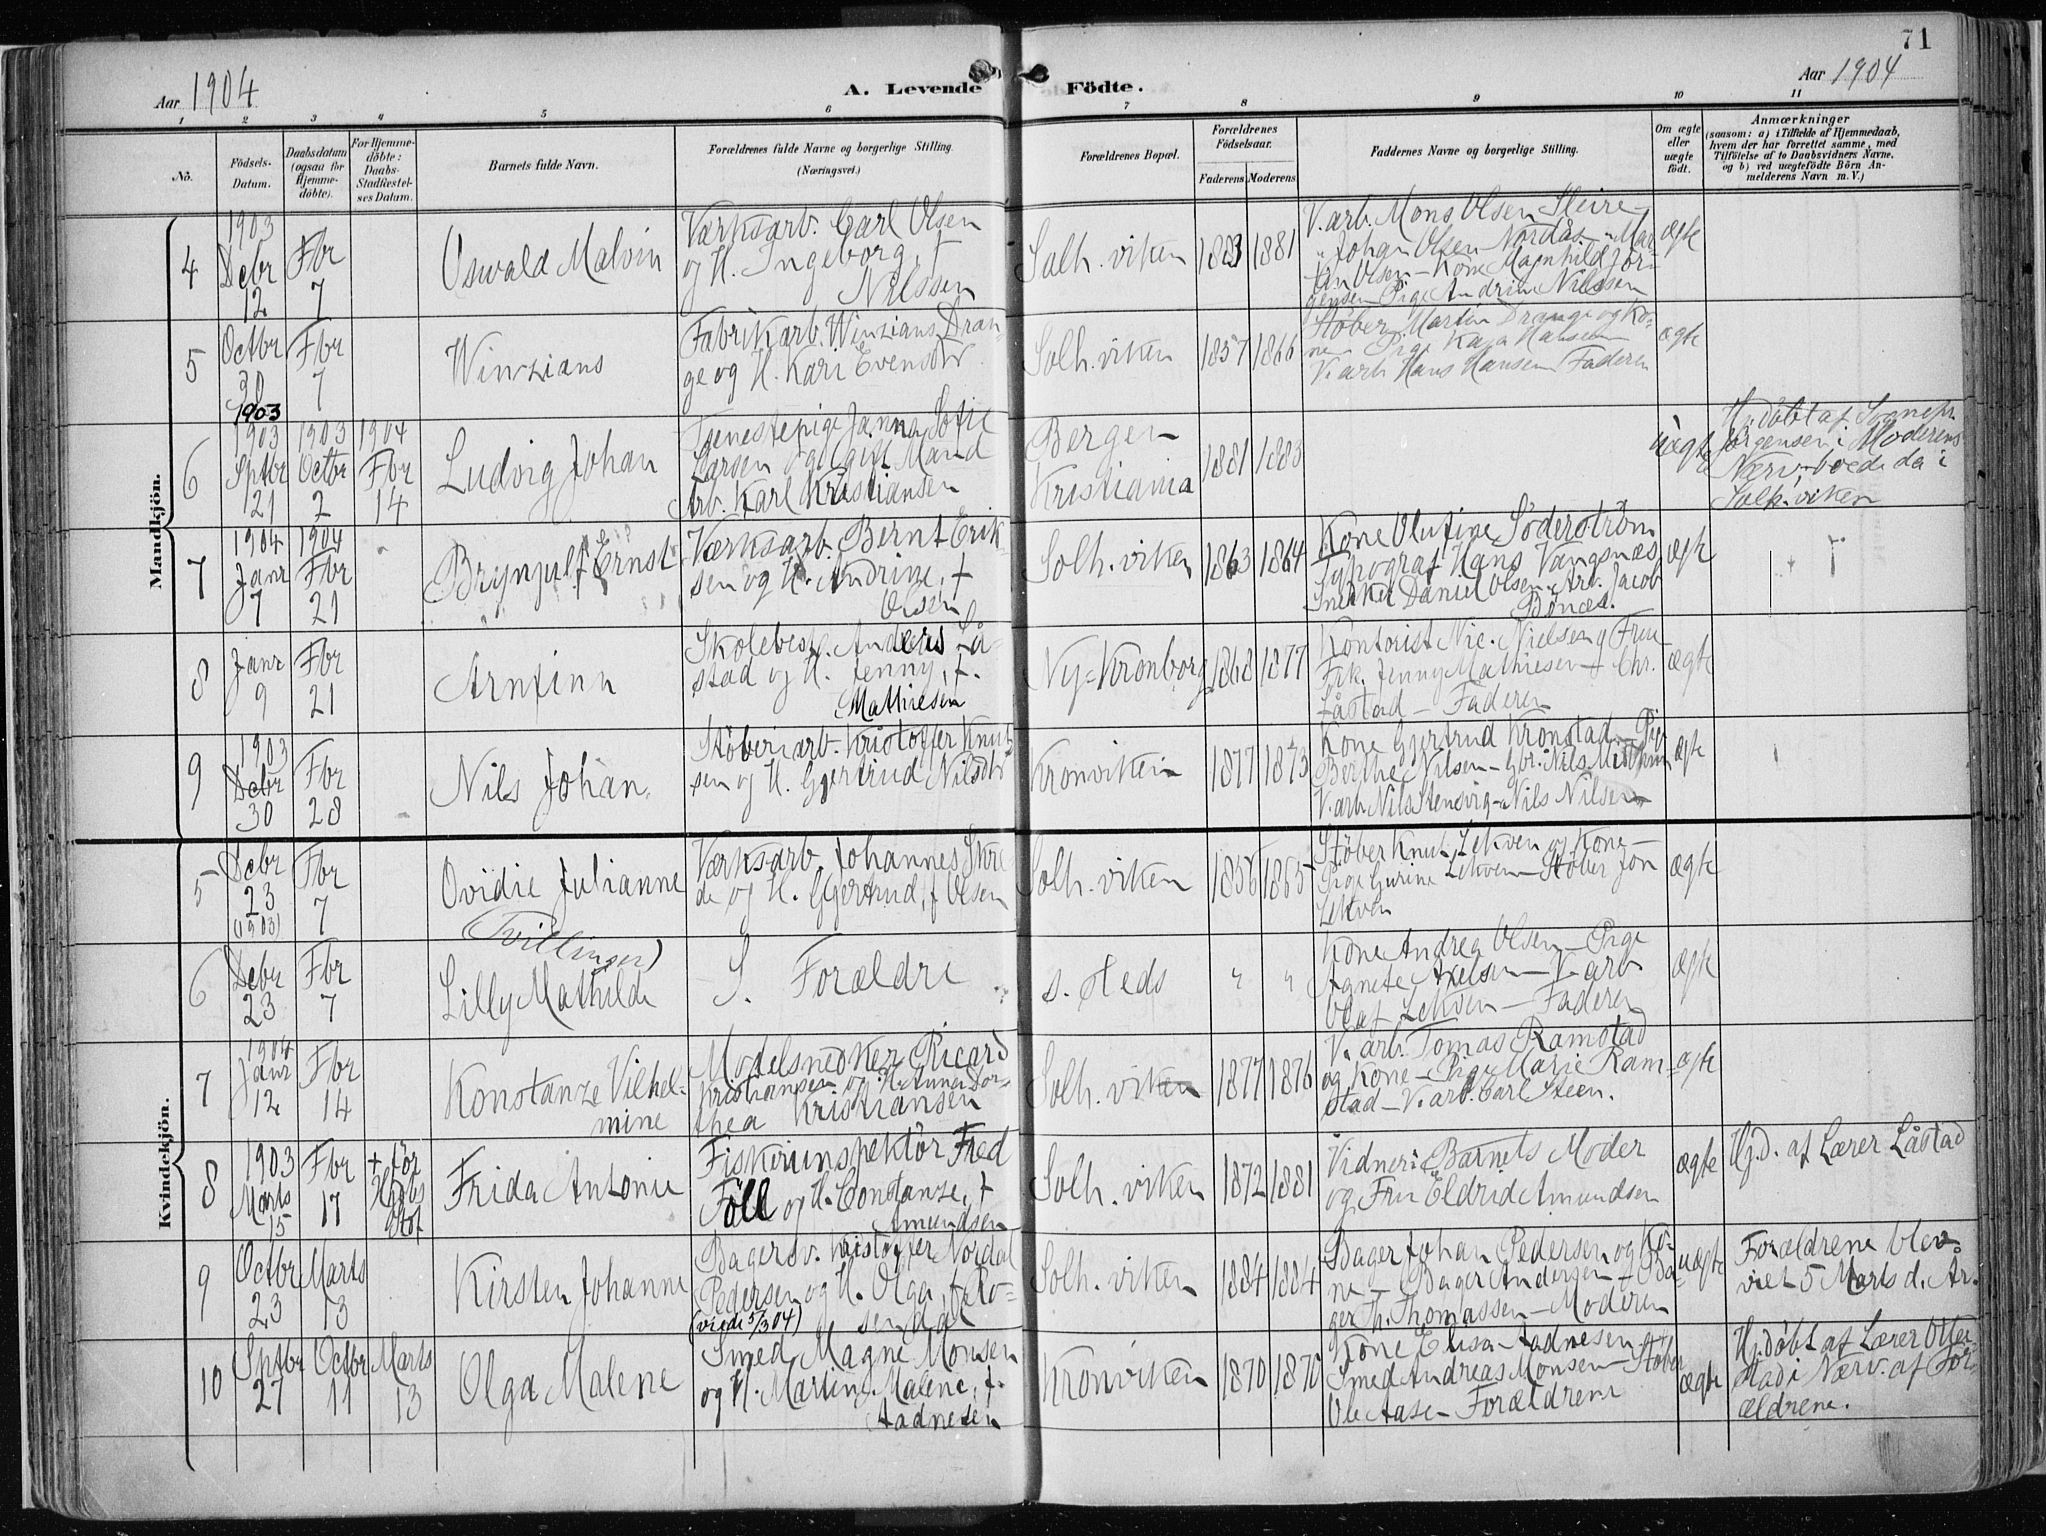 71
Aar 1904
A. Levende Födte.
Aar 1904
1 2 3 4 5 6 7 8 9 10 11
No.
Födsels-Datum.
Daabsdatum (ogsaa for Hjemme-döbte).
For Hjemme-döbte: Daabs-Stadfæstel-ses Datum.
Barnets fulde Navn.
Forældrenes fulde Navne og borgerlige Stilling. (Næringsvei.)
Forældrenes Bopæl.
Forældrenes Födselsaar.
Faderens Moderens
Faddernes Navne og borgerlige Stilling.
Om ægte eller uægte født.
Anmærkninger
(saasom: a) i Tilfælde af Hjemmedaab,
hvem der har forrettet samme, med
Tilföielse af to Daabsvidners Navne,
og b) ved uægtefödte Börn An-
melderens Navn m. V.)
Mandkjön.
4
1903 Debr 12
Fbr 7
Oswald Malvin
Værksarb. Carl Olsen
og H. Ingeborg, f.
Nilssen
Solh.viken
1883 1881
V.arb. Mons Olsen Steire-
" Johan Olsen Nordås - " Mar-
tin Olsen - Kone Magnhild Jör-
gensen Pige Andrine Nilssen
ægte
5
Octbr 30 1903
Fbr 7
Winzians
Fabrikarb. Winzians Dran-
ge og H. Kari Evensdtr
Solh.viken
1857 1866
Støber Martin Drange og Ko-
ne - Pige Kaja Hansen
V.arb Hans Hansen Faderen
ægte
6
1903 Sptbr 21
1903 Octbr 2
1904 Fbr 14
Ludvig Johan
Tjenestepige Janna Sofie
Larsen og ugift Mand
Arb. Karl Kristiansen
Bergen
Kristiania
1881 1883
uægte
Hj.döbt af Sognepr.
Jörgensen i Moderens
Nærv. boede da i
Solh.viken
7
1904 Janr 7
1904 Fbr 21
Brynjulf Ernst
Værksarb. Bernt Erik-
sen og H. Andrine, f.
Olsen
Solh.viken
1863 1864
Kone Olufine Söderström
Typograf Hans Vangsnæs
Snekker Daniel Olsen - Arb. Jacob
Bönæs.
ægte
8
Janr 9
Fbr 21
Arnfinn
Skolebest. Anders Lå-
stad og H. Jenny, f.
Mathiesen
Ny-Kronborg
1868 1877
Kontorist Nic. Nielsen og Frue
Frk. Jenny Mathiesen - Chr.
Låstad - Faderen
ægte
9
1903 Debr 30
Fbr 28
Nils Johan
Stöberiarb. Kristoffer Knut-
sen og H. Gjertrud Nilsdtr
Kronviken
1877 1873
Kone Gjertrud Kronstad - Pige
Berthe Nilsen - Gbr. Nils
V.arb Nils Stensvig - Nils Nilsen
ægte
Kvindekjön.
5
Debr 23 (1903)
Fbr 7
Ovidie Julianne
Værksarb. Johannes Skre-
de og H. Gjertrud, f Olsen
Solh.viken
1856 1865
Støber Knut Lekven og Kone -
Pige Gurine Lekven - Støber Jon
Lekven
ægte
(Tvillinger)
6
Debr 23
Fbr 7
Lilly Mathilde
S. Forældre
s. steds
" "
Kone Andrea Olsen - Pige
Agnete Axelsen - V.arb
Olaf Lekven - Faderen
ægte
7
1904 Janr 12
Fbr 14
Konstanze Vilhel-
mine
Modelsnedker Ricard
Kristiansen og H. Anna Dor-
thea Kristiansen
Solh.viken
1877 1876
V. arb. Tomas Ramstad
og Kone - Pige Marie Ram-
stad - V.arb. Carl Steen.
ægte
8
1903 Marts 15
Fbr 17
+ för
Frida Antonie
Fiskeriinspektör Fred
Föll og H. Constanze, f
Amundsen
Solh.viken
1872 1881
Vidner: Barnets Moder
og Fru Eldrid Amundsen
ægte
Hj.d. af Lærer Låstad
9
Octbr 23
Marts 13
Kirsten Johanne
Bagersv. Kristoffer Nordal
Pedersen og H. Olga, f Ro-
(viede 5/3 04) sendal
Solh.viken
1884 1884
Bager Johan Pedersen og Ko-
ne - Bager Andersen - Ba-
ger Th. Thomassen - Moderen
uægte
Forældrene blev
viet 5 Marts d. Ar.
10
Sptbr 27
Octbr 11
Marts 13
Olga Malene
Smed Magne Monsen
og H. Martine Malene, f.
Aadnesen
Kronviken
1870 1870
Kone Elisa Aadnesen
Smed Andreas Monsen - Stöber
Ole Aase - Forældrene
ægte
Hj.döbt af Lærer Otter-
stad i Nærv. af For-
ældrene.